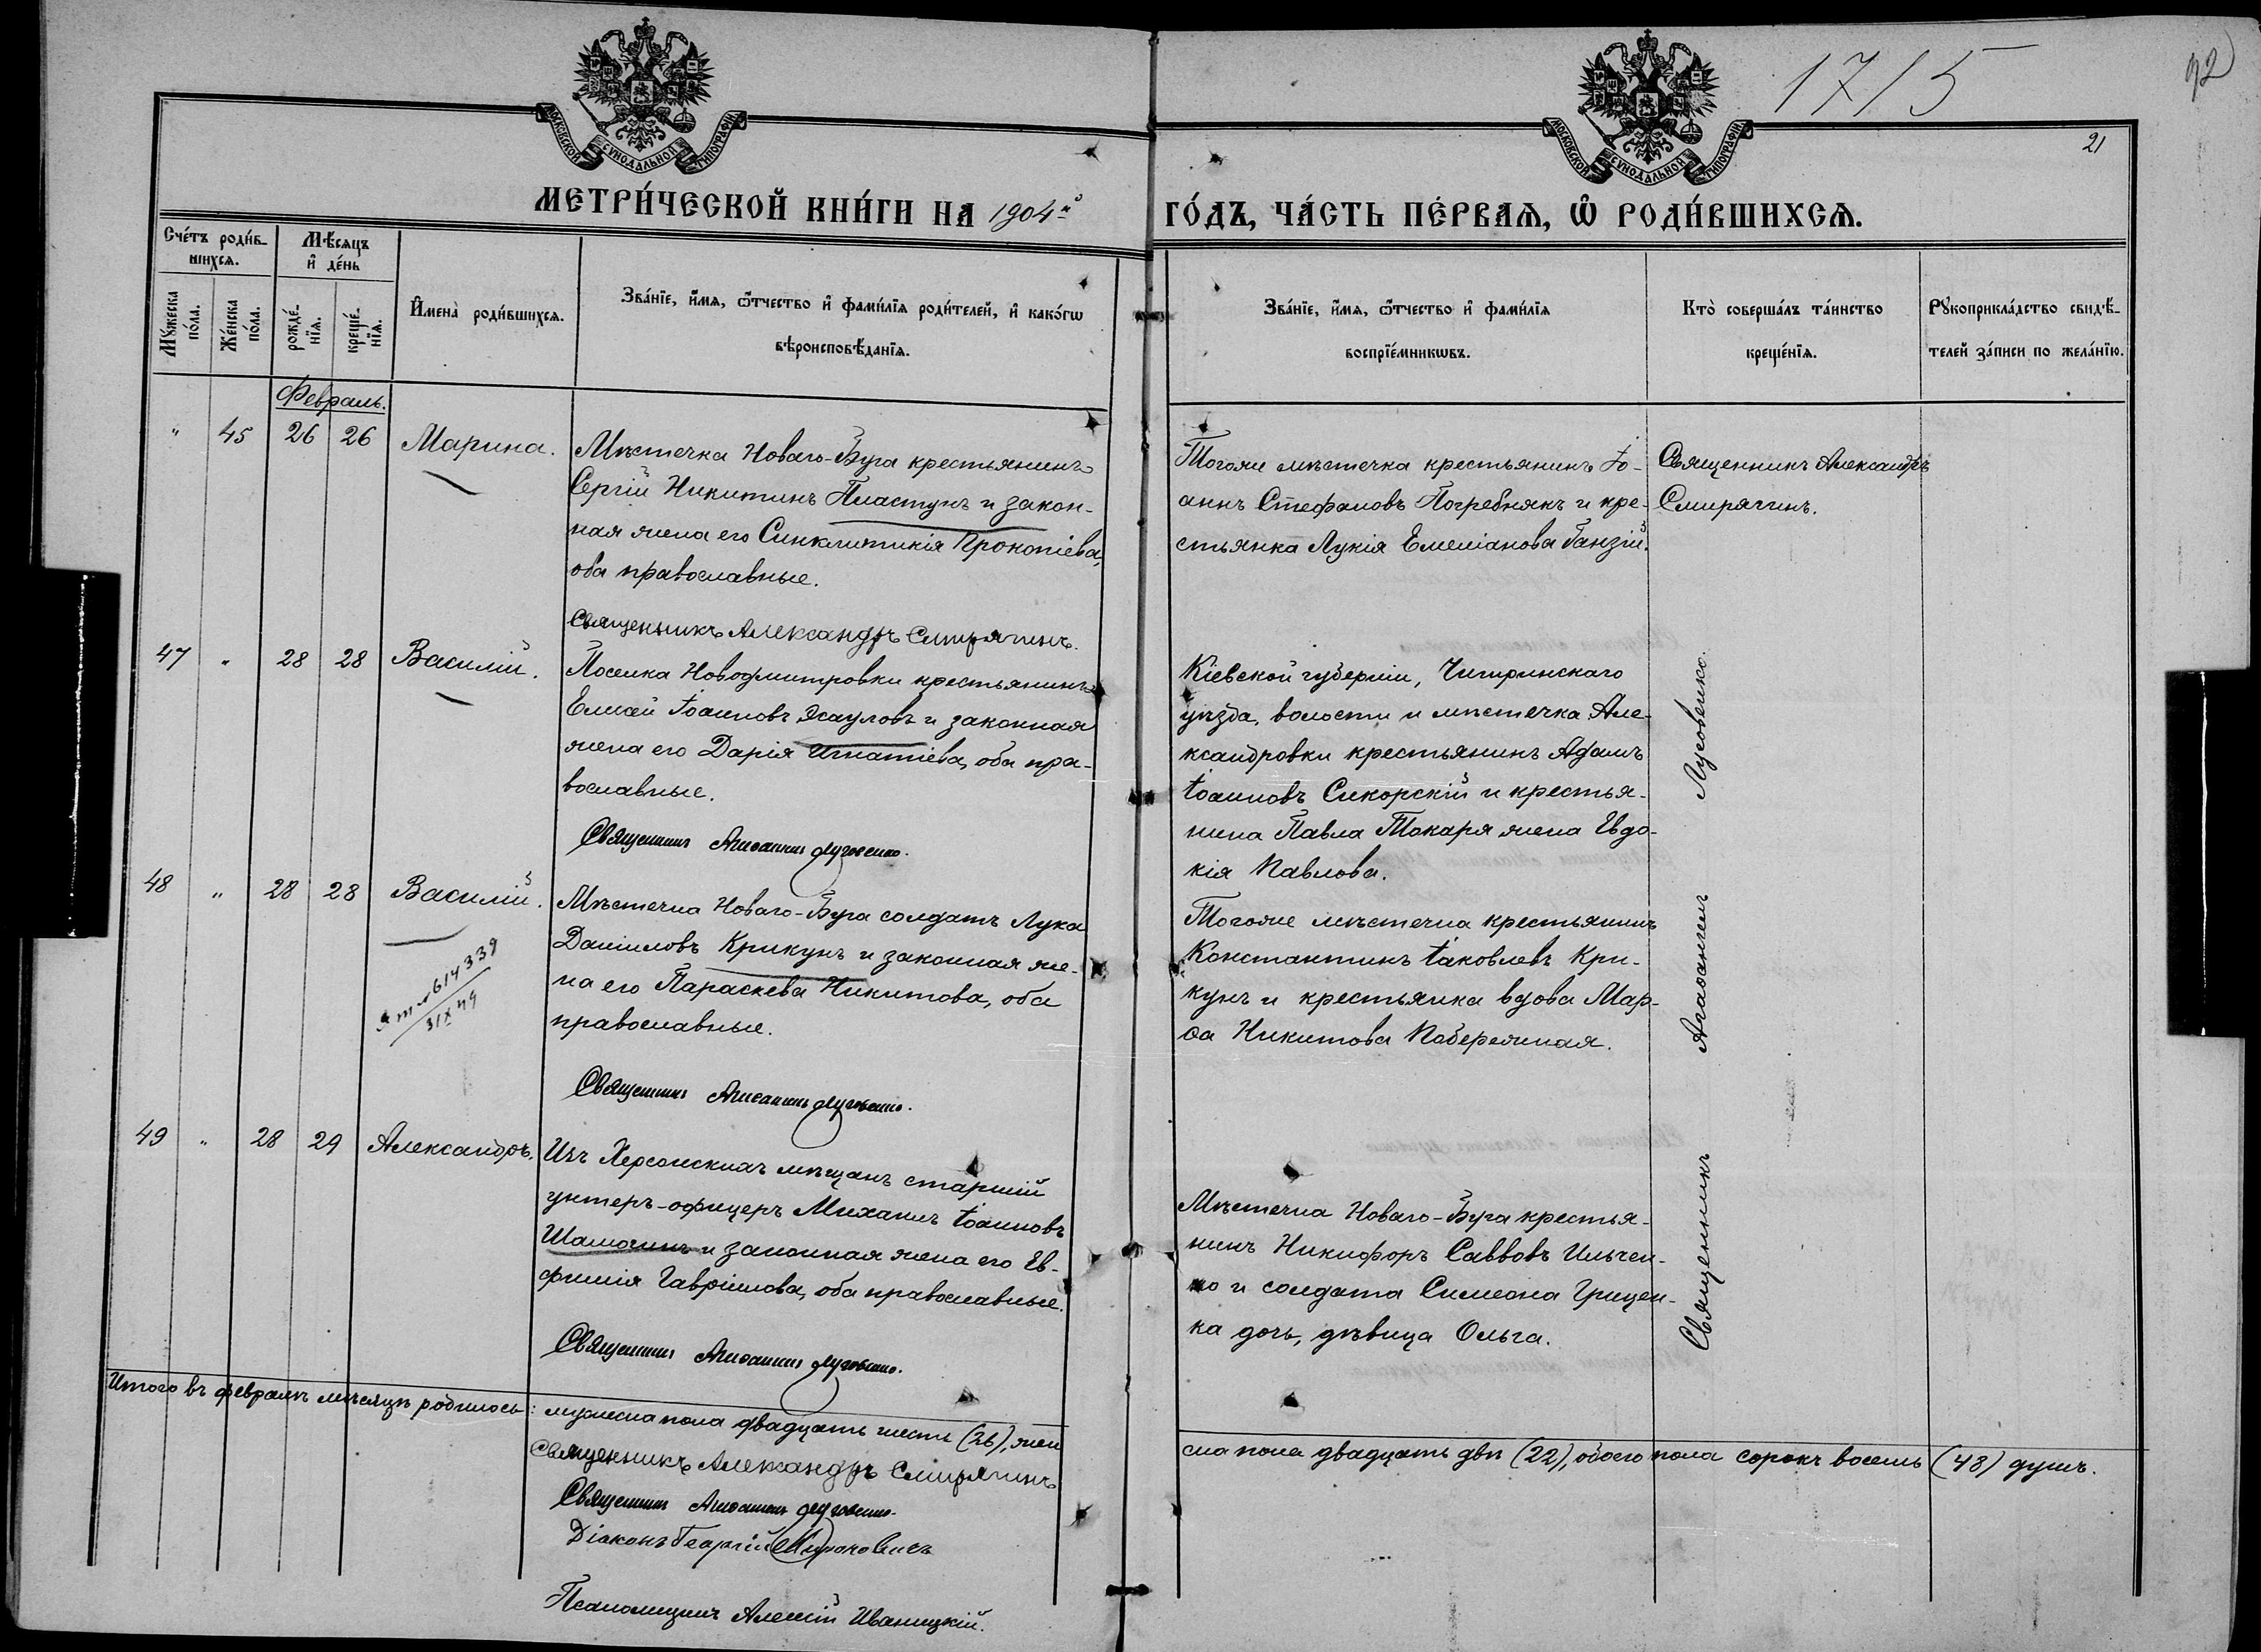 1715
92
21
МОСКОВСКОЙ СУНОДАЛЬНОЙ ТИПОГРАФІИ
МОСКОВСКОЙ СУНОДАЛЬНОЙ ТИПОГРАФІИ
МЕТРИ́ЧЕСКОЙ КНИ́ГИ НА 1904й ГО́ДЪ, ЧА́СТЬ ПЕ́РВАѦ, Ѽ РОДИ́ВШИХСѦ.
Сче́тъ роди́в-
шихсѧ.
Мѣ́сѧцъ
и҆ де́нь
Мꙋ́жеска
по́ла.
Же́нска
по́ла.
рожде́-
нїѧ.
креще́-
нїѧ.
И҆мена̀ роди́вшихсѧ.
Зва́нїе, и҆́мѧ, ѻ҆́тчество и҆ фами́лїѧ роди́телей, и҆ како́гѡ
вѣроисповѣ́данїѧ.
Зва́нїе, и҆́мѧ, ѻ҆́тчество и҆ фами́лїѧ
воспрїе́мникѡвъ.
Кто̀ соверша́лъ та́инство
креще́нїѧ.
Рꙋкоприкла́дство свидѣ́-
телей за́писи по жела́нїю.
Февраль.
" 45 26 26 Марина.
Мѣстечка Новаго-Буга крестьянинъ
Сергій Никитинъ Пластунъ и закон-
ная жена его Синклитикія Прокопіева,
оба православные.
Священникъ Александръ Смирягинъ.
Тогоже мѣстечка крестьянинъ Іо-
аннъ Стефановъ Погребнякъ и кре-
стьянка Лукія Емеліанова Ганзій.
Священникъ Александръ
Смирягинъ.
47 " 28 28 Василій.
Поселка Новодмитровки крестьянинъ
Елисей Іоанновъ Эсауловъ и законная
жена его Дарія Игнатіева, оба пра-
вославные.
Священникъ Агаѳангелъ Лусовенко.
Кіевской губерніи, Чигиринскаго
уѣзда, волости и мѣстечка Але-
ксандровки крестьянинъ Адамъ
Іоанновъ Сикорскій и крестья-
нина Павла Токаря жена Евдо-
кія Павлова.
48 " 28 28 Василій.
614339
31 X 49
Мѣстечка Новаго-Буга солдатъ Лука
Даніиловъ Крикунъ и законная же-
на его Параскева Никитова, оба
православные.
Священникъ Агаѳангелъ Лусовенко.
Тогоже мѣстечка крестьянинъ
Константинъ Іаковлевъ Кри-
кунъ и крестьянка вдова Мар-
ѳа Никитова Побережная.
49 " 28 29 Александръ.
Изъ Херсонскихъ мѣщанъ старшій
унтеръ-офицеръ Михаилъ Іоанновъ
Шамочинъ и законная жена его Ев-
фимія Гавріилова, оба православные.
Священникъ Агаѳангелъ Лусовенко.
Мѣстечка Новаго-Буга крестья-
нинъ Никифоръ Саввовъ Ильчен-
ко и солдата Симеона Грицен-
ка дочь, дѣвица Ольга.
Священникъ Агаѳангелъ Лусовенко.
Итого въ февралѣ мѣсяцѣ родилось: мужеска пола двадцать шесть (26), жен
ска пола двадцать двѣ (22), обоего пола сорокъ восемь (48) душъ.
Священникъ Александръ Смирягинъ
Священникъ Агаѳангелъ Лусовенко.
Діаконъ Георгій Мироновичъ
Псаломщикъ Алексій Иваницкій.